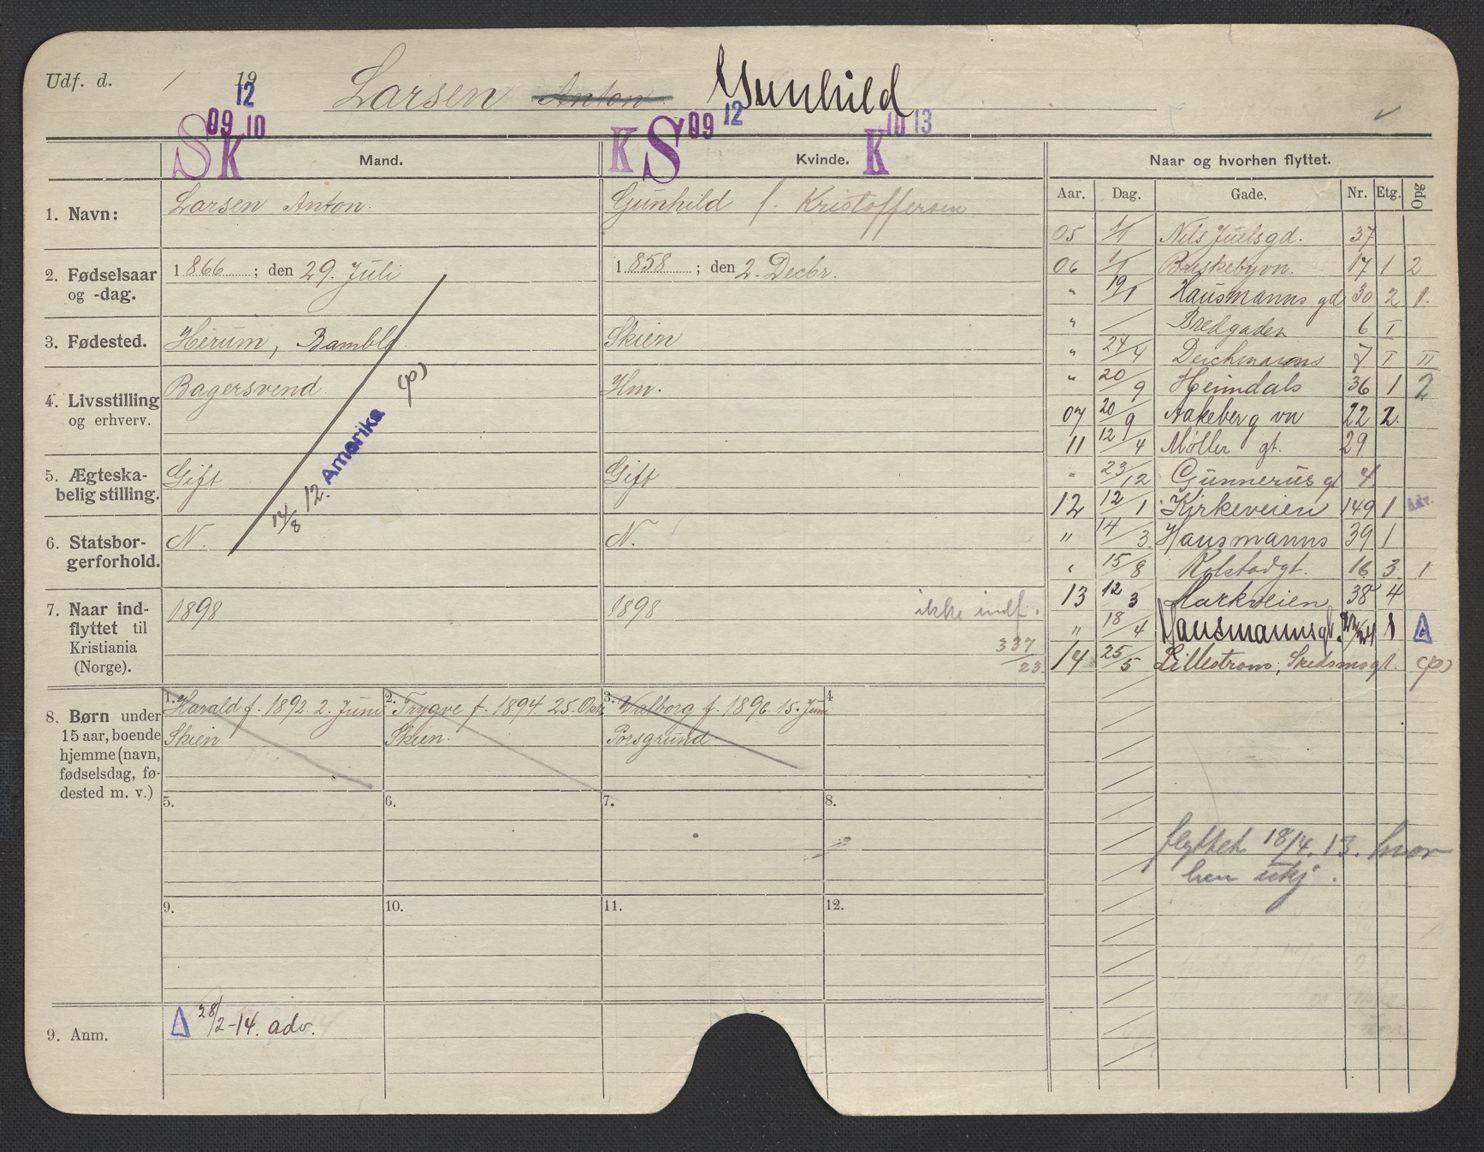 Udf. d. / 19 Larsen Anton Gunhild
12
S 09 K 10 K S 09 12 K 10 13
Mand. Kvinde. Naar og hvorhen flyttet.
Aar. Dag. Gade. Nr. Etg. Opg
1. Navn: Larsen Anton. Gunhild f. Kristoffersen
2. Fødselsaar og -dag. 1866 ; den 29. Juli 1858 ; den 2. Decbr.
3. Fødested. Herum, Bamble Skien
4. Livsstilling og erhverv. Bagersvend Hm.
5. Ægteska-
belig stilling. Gift Gift
6. Statsbor-
gerforhold. N. N.
14/8 12. Amerika (p)
7. Naar ind-
flyttet til
Kristiania
(Norge). 1898 1898 ikke indf.
337/23.
8. Børn under
15 aar, boende
hjemme (navn,
fødselsdag, fø-
dested m. v.)
1. Harald f. 1892. 2. Juni
Skien
2. Trygve f. 1894 25. Okt.
Skien.
3. Valborg f. 1896 15. Juni
Porsgrund
4
5. 6. 7. 8.
9. 10. 11. 12.
9. Anm. Δ 28/2-14. adv.
05 1/1 Nils Juelsgd. 37
06 1/1 Briskebyvn. 17 1 2
" 19/1 Hausmanns gd 30 2 1.
" / Bredgaden 6 I
" 24/4 Deichmanns 7 I II
" 20/9 Heimdals 36 1 2
07 20/9 Aakeberg vn 22 2.
11 12/4 Møller gt. 29
" 23/12 Gunnerus gt 4.
12 12/1 Kirkeveien 149 1 Adv.
" 14/3. Hausmanns 39 1
" 15/8 Kolstadgt. 16 3. 1
13 12/3 Markveien 38 4
" 18/4 Hausmannsgt. 22/24 1 Δ
14 25/5 Lillestrøm, Skedsmogt. (p)
flyttet 18/4. 13. hvor
hen ukj.